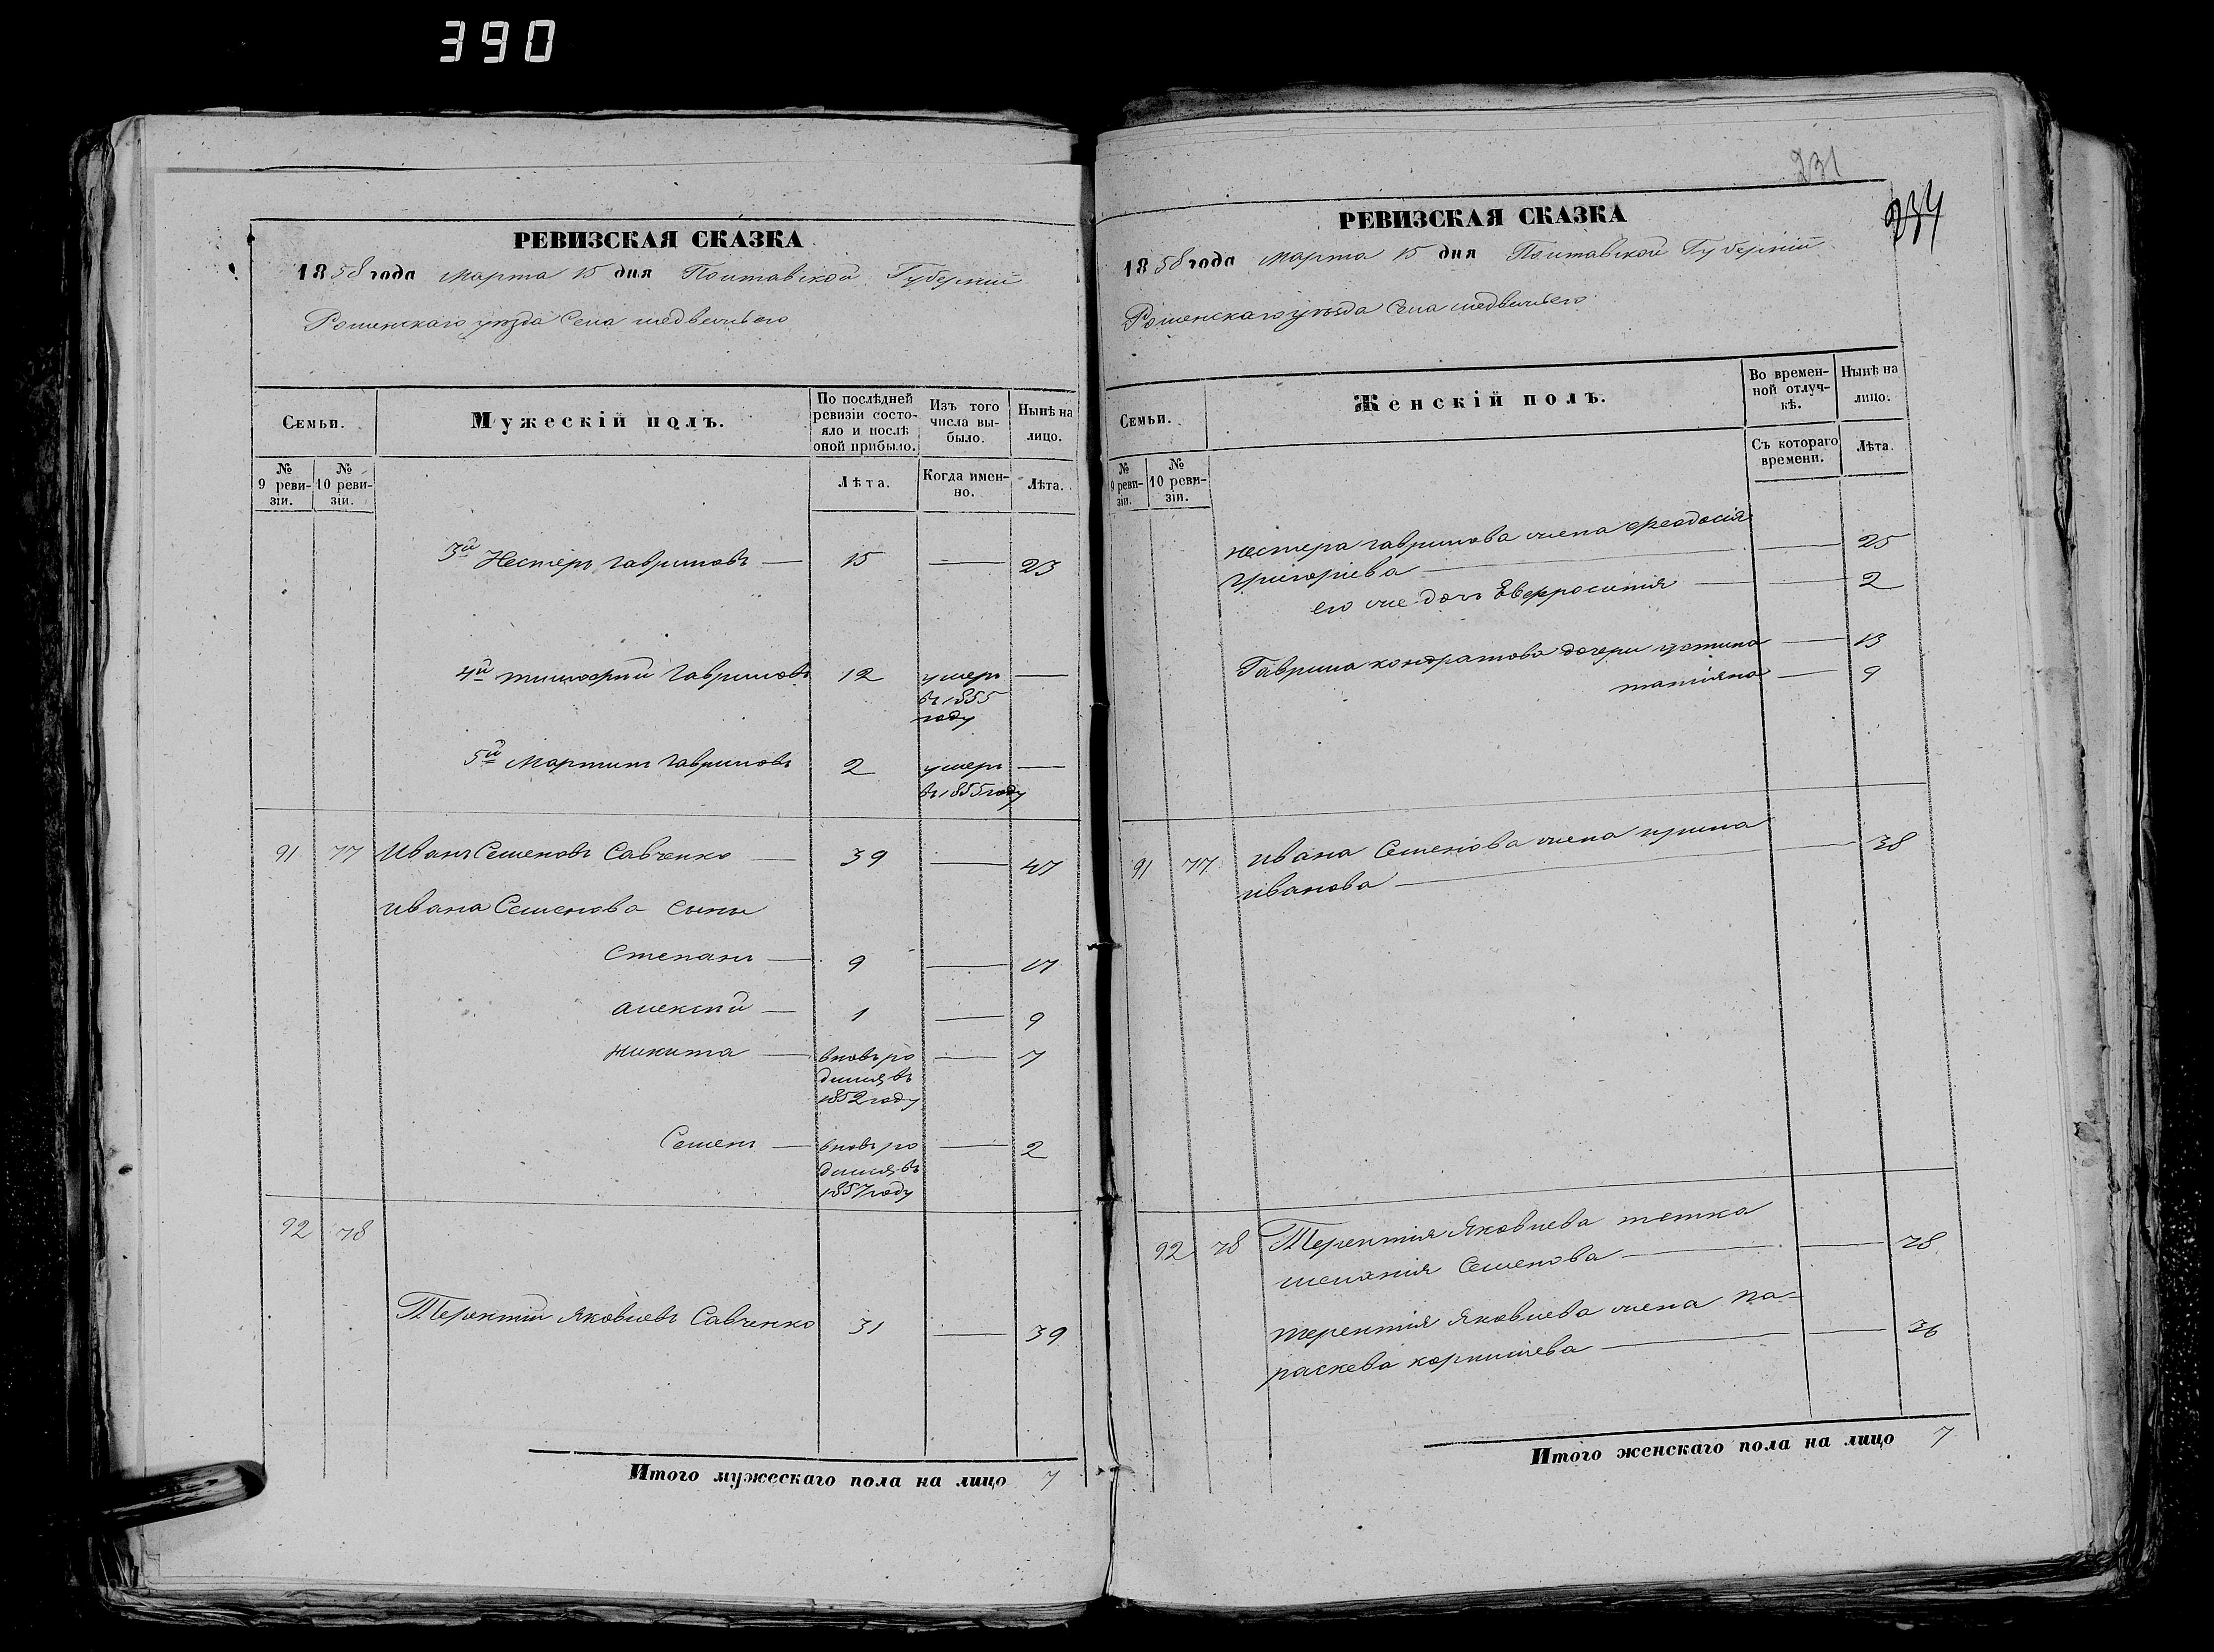 390
РЕВИЗСКАЯ СКАЗКА
1858 года Марта 15 дня Полтавской Губерніи
Роменскаго уезда Села медвежьего
Семьи.
Мужескій полъ.
По послѣдней ревизіи состояло и послѣ оной прибыло.
Изъ того числа выбыло.
Нынѣ на лицо.
№ 9 ревизіи.
№ 10 ревизіи.
Лѣта.
Когда именно.
Лѣта.
3й Нестеръ гавриловъ — 15 — 23
4й тимофей Гавриловъ 12 умеръ —
въ 1855
году
5й Мартинъ гавриловъ 2 умеръ —
въ 1855 году
91 77 Иванъ Семеновъ Савченко — 39 — 47
Ивана Семенова сыны
Степанъ — 9 — 17
алексей — 1 — 9
никита — вновь ро — 7
дился въ
1852 году
Семенъ — вновь ро — 2
дился въ
1857 году
92 78
Терентій Яковлевъ Савченко 31 — 39
Итого мужескаго пола на лицо 7
231
234
РЕВИЗСКАЯ СКАЗКА
1858 года Марта 15 дня Полтавской Губерніи
Роменскаго уезда Села медвежьего
Семьи.
Женскій полъ.
Во временной отлучкѣ.
Нынѣ на лицо.
№ 9 ревизіи.
№ 10 ревизіи.
Съ котораго времени.
Лѣта.
нестера гаврилова жена феодосія
григоріева — — 25
его же дочь Евфросинія — — 2
Гаврила кондратова дочери устина — 13
татіяна — 9
91 77 ивана Семенова жена ирина — 38
иванова —
92 78 Терентія Яковлева тетка
меланія Семенова — — 78
терентія Яковлева жена па-
раскева корнилиева — — 36
Итого женскаго пола на лицо 7